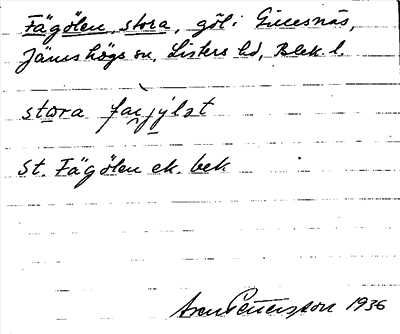 Fägölen, stora, göl i Gillesnäs,
Jämshögs sn, Listers hd, Blek. l.
stora
St. Fägölen ek. bek
Pettersson 1936